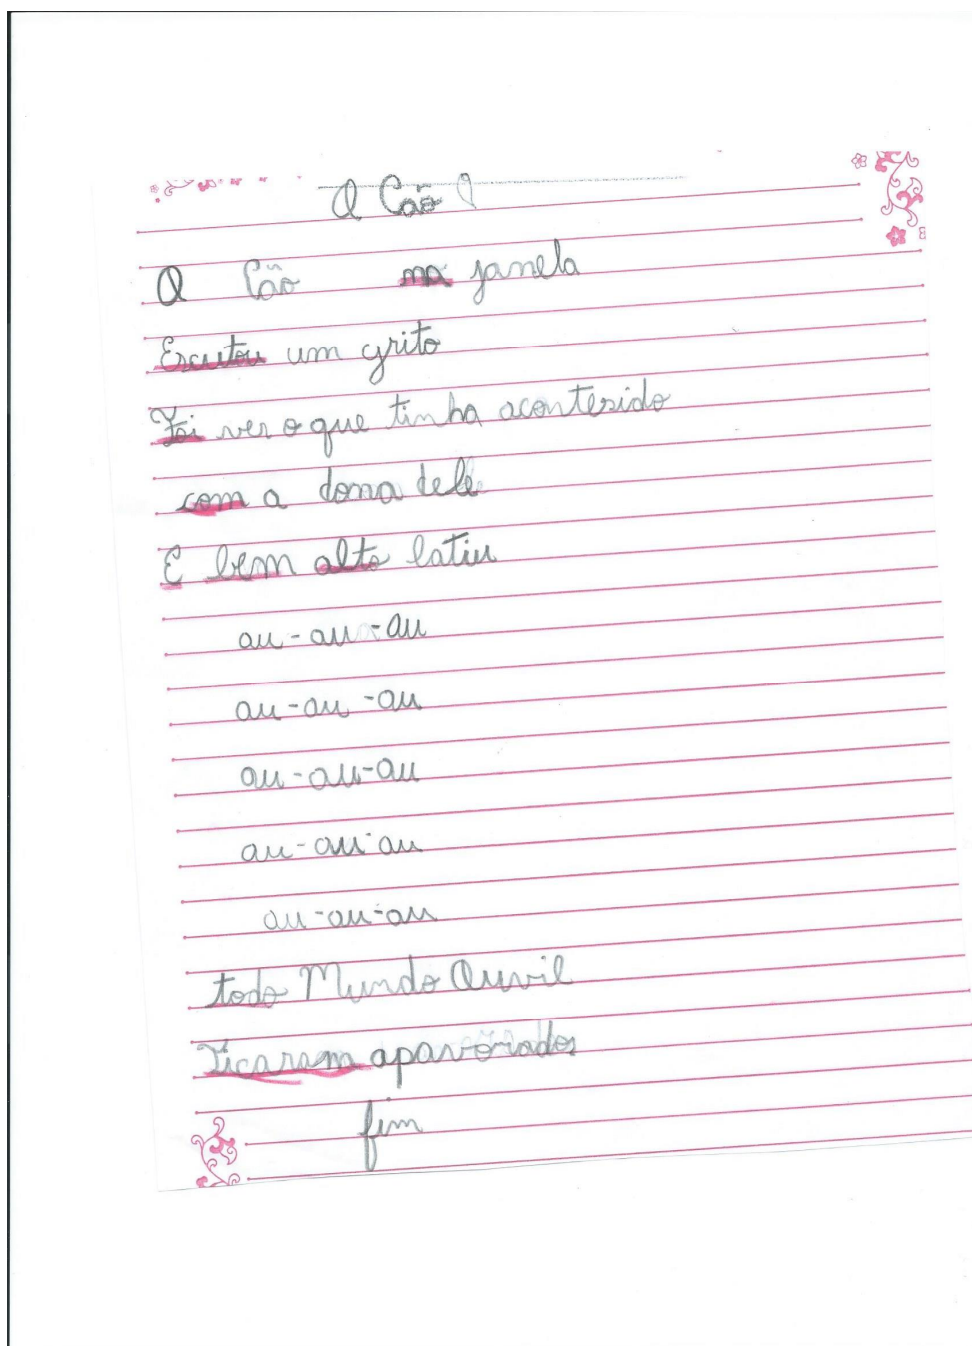 O Cão
O Cão na janela
Escutou um grito
Foi ver o que tinha acontesido
com a dona dele
E bem alto latiu
au-au-au
au-au-au
au-au-au
au-au-au
au-au-au
todo Mundo Ouvil
Ficaram apavorados
fim